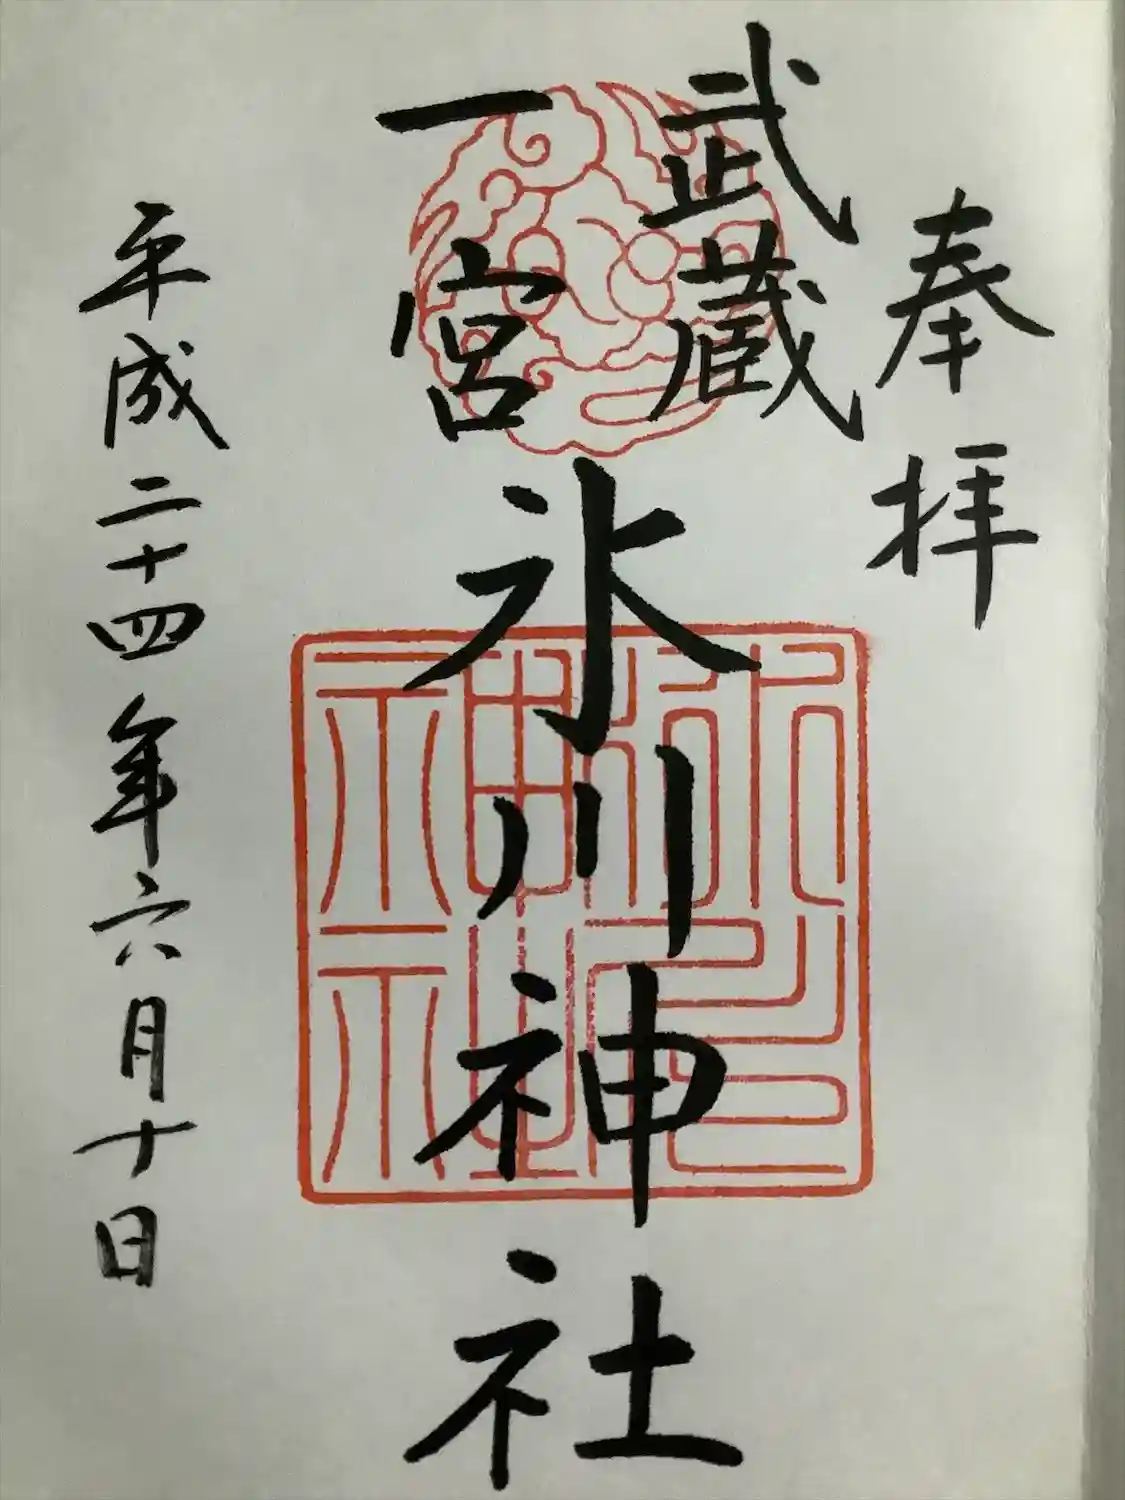 奉拝
武蔵
一宮
氷川神社
平成二十四年六月十日